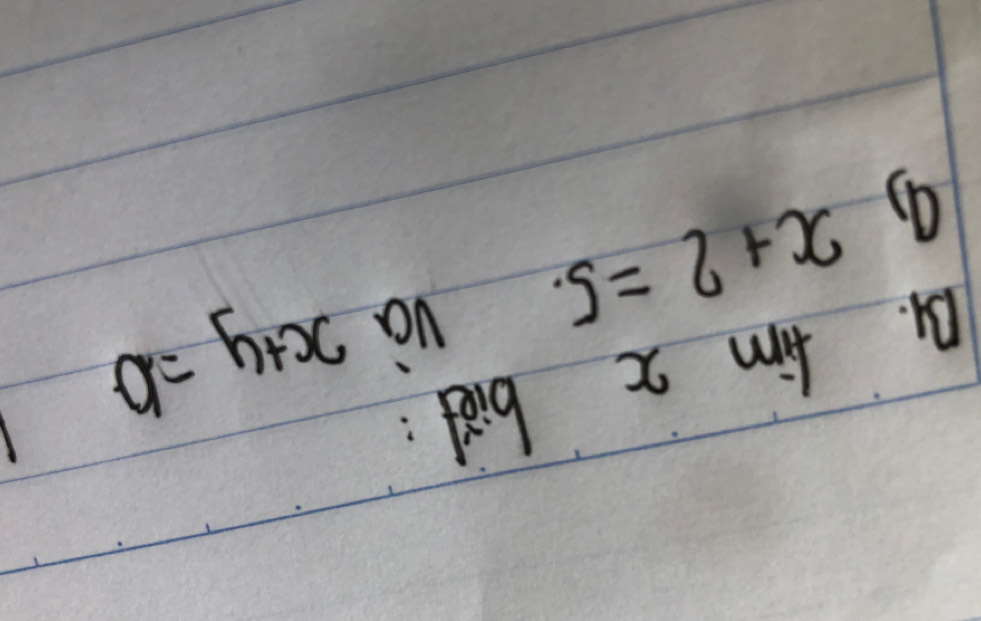 B1. tìm x biết :
a) x+2 =5. và x+y =10